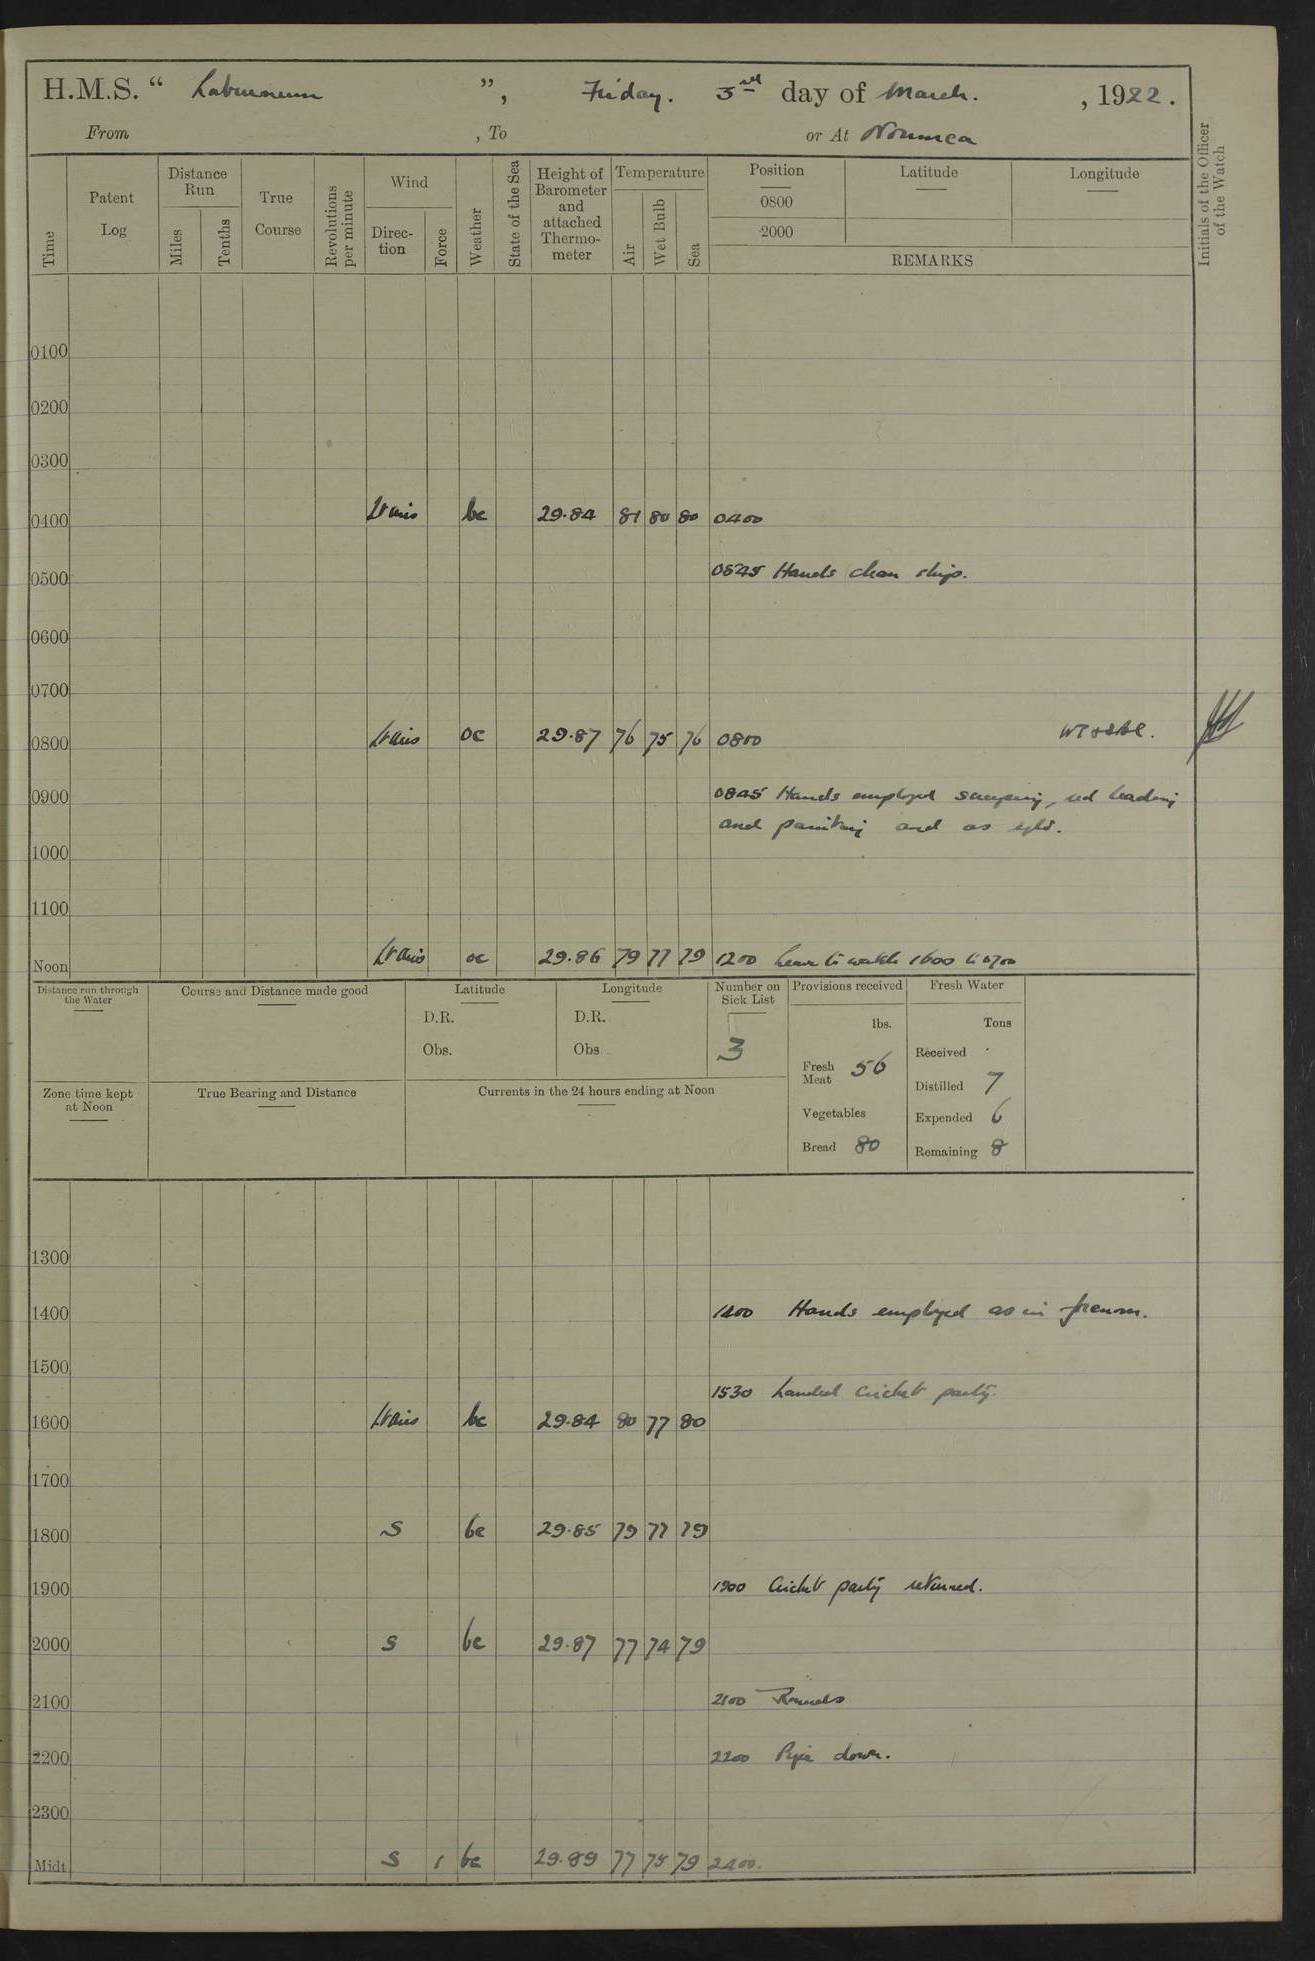 H.M.S. “ Laburnum ”, Friday. 3rd day of March. , 1922.
From , To or At Noumea
Time
Patent Log
Distance Run
Miles
Tenths
True Course
Revolutions per minute
Wind
Direc-tion
Force
Weather
State of the Sea
Height of Barometer and attached Thermo-meter
Temperature
Air
Wet Bulb
Sea
Position
0800
2000
Latitude
Longitude
REMARKS
Initials of the Officer of the Watch
0100
0200
0300
0400 Lt airs bc 29.84 81 80 80 0400
0500 0545 Hands clean ship.
0600
0700
0800 Lt airs oc 29.87 76 75 76 0800
0900 0845 Hands employed scraping, red leading
and painting and as
1000
1100
Noon Lt airs oc 29.86 79 77 79 1200 Leave to watch 1600 to 0700
Distance run through the Water
Course and Distance made good
Latitude
D.R.
Obs.
Longitude
D.R.
Obs
Number on Sick List
3
Provisions received
lbs.
Fresh Meat 56
Vegetables
Bread 80
Fresh Water
Tons
Received
Distilled 7
Expended 6
Remaining 8
Zone time kept at Noon
True Bearing and Distance
Currents in the 24 hours ending at Noon
1300
1400 1400 Hands employed as in forenoon.
1500 1530 Landed cricket party.
1600 Lt airs bc 29.84 80 77 80
1700
1800 S bc 29.85 79 77 79
1900 1900 Cricket party returned.
2000 S bc 29.87 77 74 79
2100 2100 Rounds
2200 2200 Pipe down.
2300
Midt. S 1 bc 29.89 77 75 79 2400.